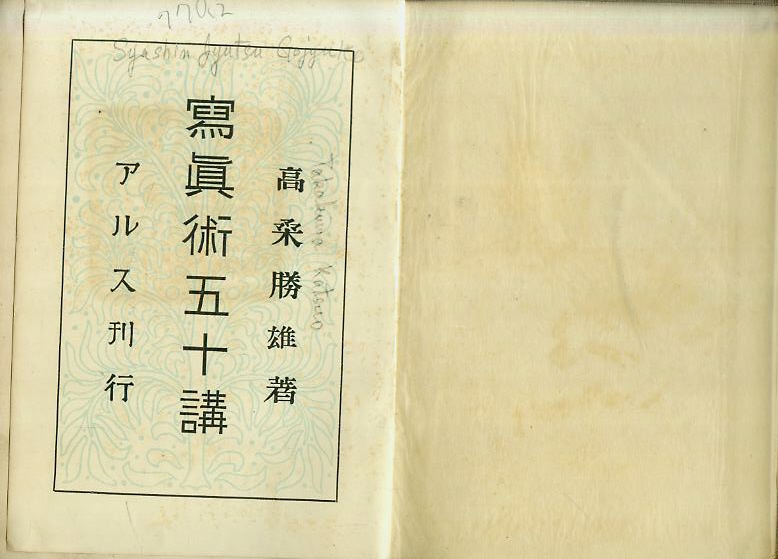 770.2
Syashin Jyutsu Gojyuko
高桑勝雄著
Takakuwa Katsuo
寫眞術五十講
アルス刊行